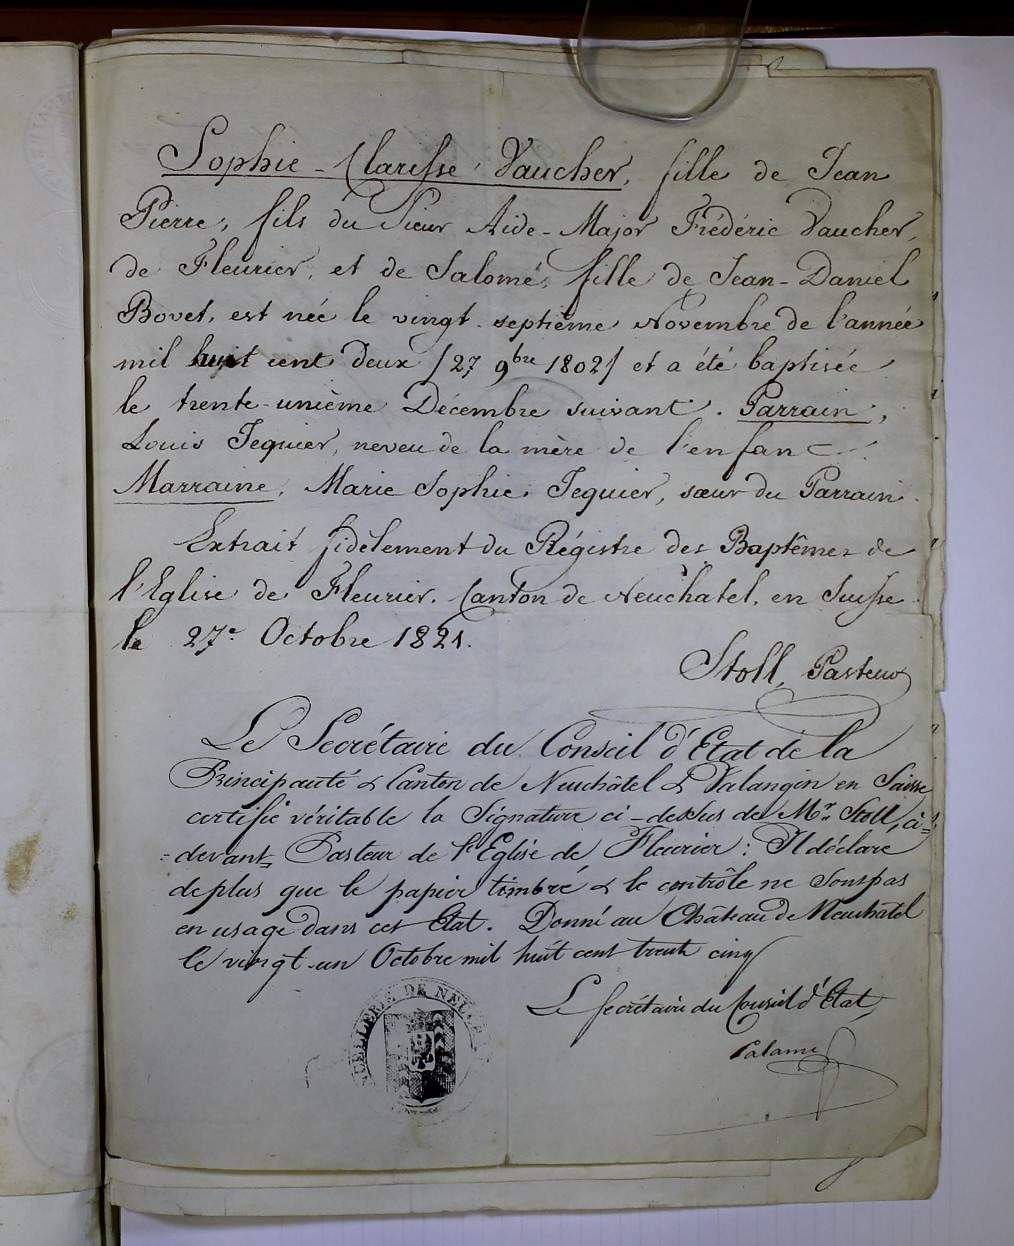 Sophie-Clarisse Vaucher, fille de Jean
Pierre, fils du Sieur Aide-Major Frédéric Vaucher,
de Fleurier, et de Salomé, fille de Jean-Daniel
Bovet, est née le vingt-septième Novembre de l'année
mil huit cent deux /27 9bre 1802/ et a été baptisée
le trente-unième Décembre suivant. Parrain,
Louis Jequier, neveu de la mère de l'enfant
Marraine, Marie Sophie Jequier, sœur du Parrain.
Extrait fidèlement du Régistre des Baptêmes de
l'Eglise de Fleurier. Canton de Neuchatel, en Suisse.
le 27e Octobre 1821.
Stoll, Pasteur
Le Secrétaire du Conseil d'Etat de la
Principauté & Canton de Neuchâtel & Valangin en Suisse
certifie véritable la Signature ci-dessus de Mr Stoll, ci=
=devant Pasteur de l'Eglise de Fleurier: Il déclare
de plus que le papier timbré & le contrôle ne sont pas
en usage dans cet Etat. Donné au Château de Neuchâtel
le vingt-un Octobre mil huit cent trente cinq
Le Secrétaire du Conseil d'Etat,
DE NEU